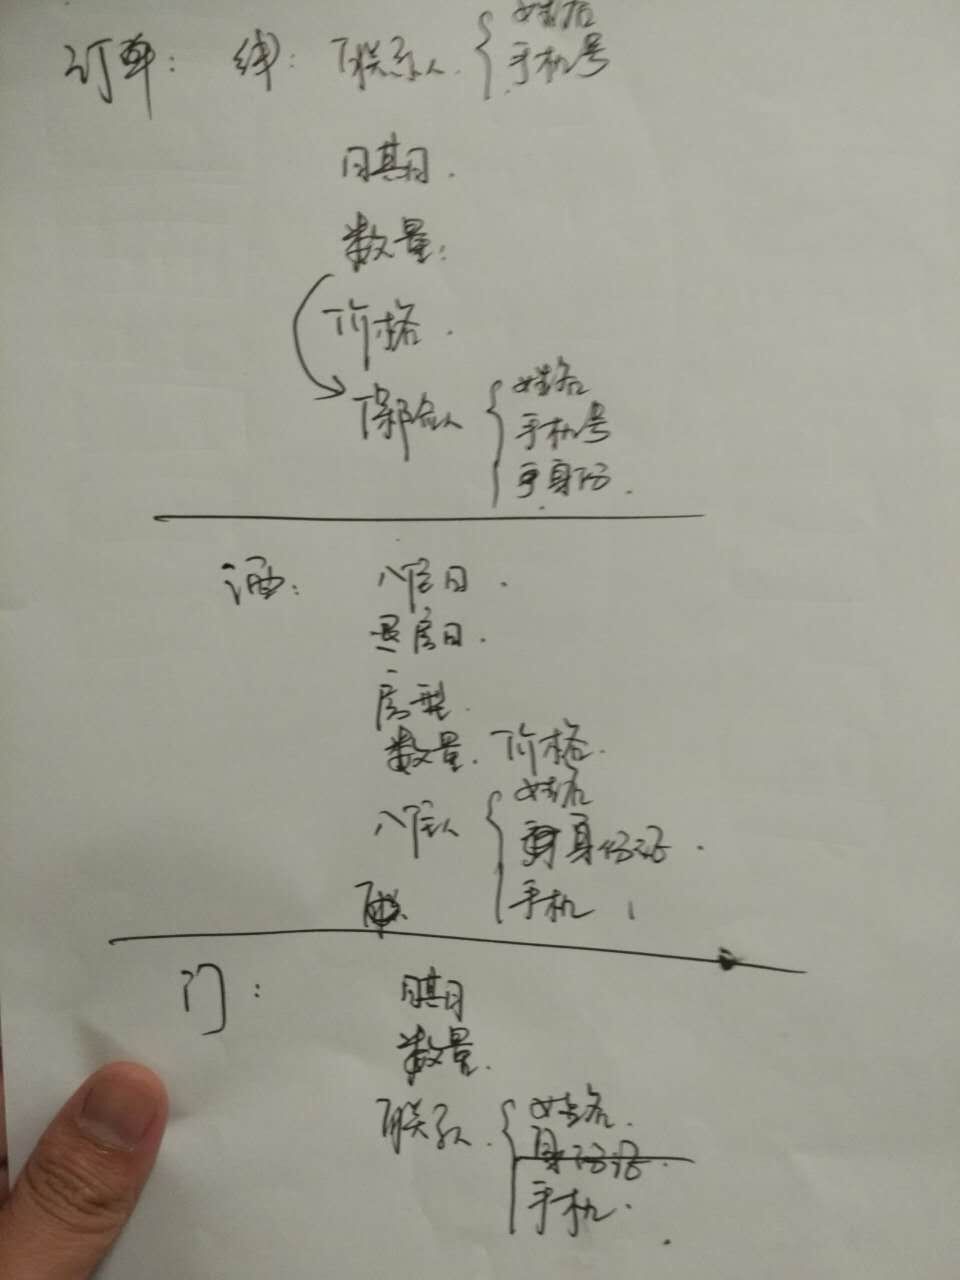 订单： 线： 联系人. 姓名
手机号
日期.
数量:
价格.
保险人 姓名
手机号
身份.
酒: 入住日.
退房日.
房型.
数量. 价格.
入住人 姓名
身份证.
手机
门:
日期
数量.
联系人. 姓名.
身份证.
手机.